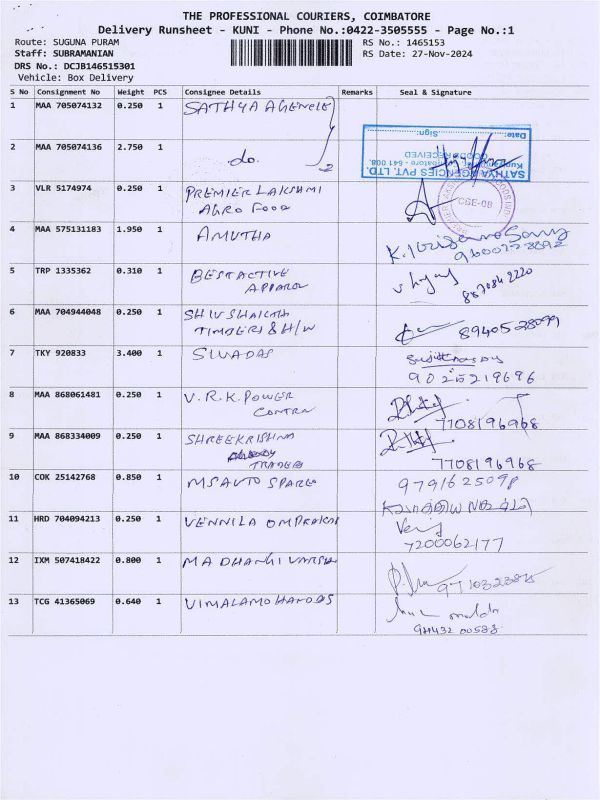 THE PROFESSIONAL COURIERS, COIMBATORE
Delivery Runsheet - KUNI - Phone No.:0422-3505555 - Page No.:1
Route: SUGUNA PURAM RS No.: 1465153
Staff: SUBRAMANIAN RS Date: 27-Nov-2024
DRS No.: DCJB146515301
Vehicle: Box Delivery
S No Consignment No Weight PCS Consignee Details Remarks Seal & Signature
1 MAA 705074132 0.250 1 SATHYA AGENCIE
2 MAA 705074136 2.750 1 do. 2
Date: Sign:
GOODS RECEIVED
641 008.
SATHYA AGENCIES PVT. LTD.
3 VLR 5174974 0.250 1 PREMIER LAKSHMI
AGRO FOOD
CBE-08
4 MAA 575131183 1.950 1 AMUTHA
5 TRP 1335362 0.310 1 BESTACTIVE
APPAREL
6 MAA 704944048 0.250 1 SHIVSHAKTHI
TIMBERS & H/W
8940528099
7 TKY 920833 3.400 1 SIVADAS
9025219696
8 MAA 868061481 0.250 1 V.R.K. POWER
CONTRO
7708196968
9 MAA 868334009 0.250 1 SHREEKRISHNA
TRADERS
7708196968
10 COK 25142768 0.850 1 MS AUTO SPARES
9791625098
11 HRD 704094213 0.250 1 VENNILA OMPRAKASH
7200062177
12 IXM 507418422 0.800 1 MADHANKI VARSH
13 TCG 41365069 0.640 1 VIMALAMOHANDAS